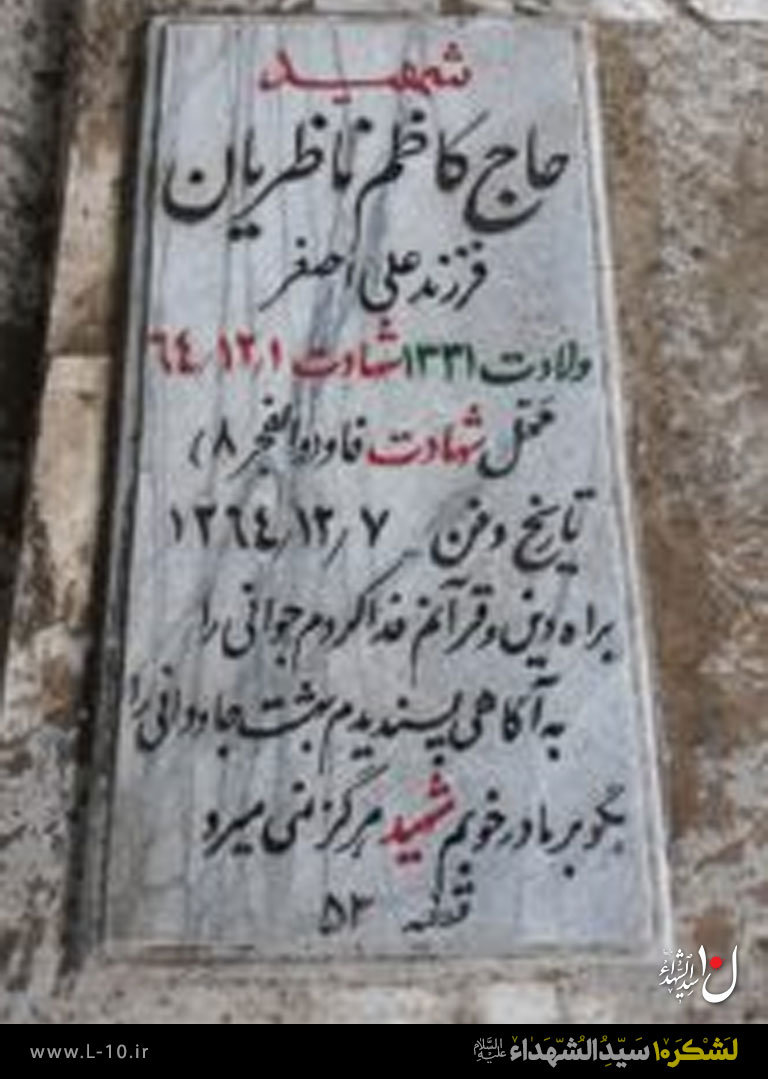 شهید
حاج کاظم ناظریان
فرزند علی اصغر
ولادت ۱۳۳۱ شهادت ٦٤/۱۲/۱
محل شهادت فاو (والفجر ۸)
تاریخ دفن ۱۳٦٤/۱۲/۷
براه دین و قرآنم فدا کردم جوانی را
به آگاهی پسندیدم بهشت جاودانی را
بگو بر مادر خوبم شهید هرگز نمی میرد
قطعه ۵۳
ل۱۰ سیدالشهداء
www.L-10.ir
لَشْکَر۱۰ سَیِّدُ الشُّهَداء علیه السلام